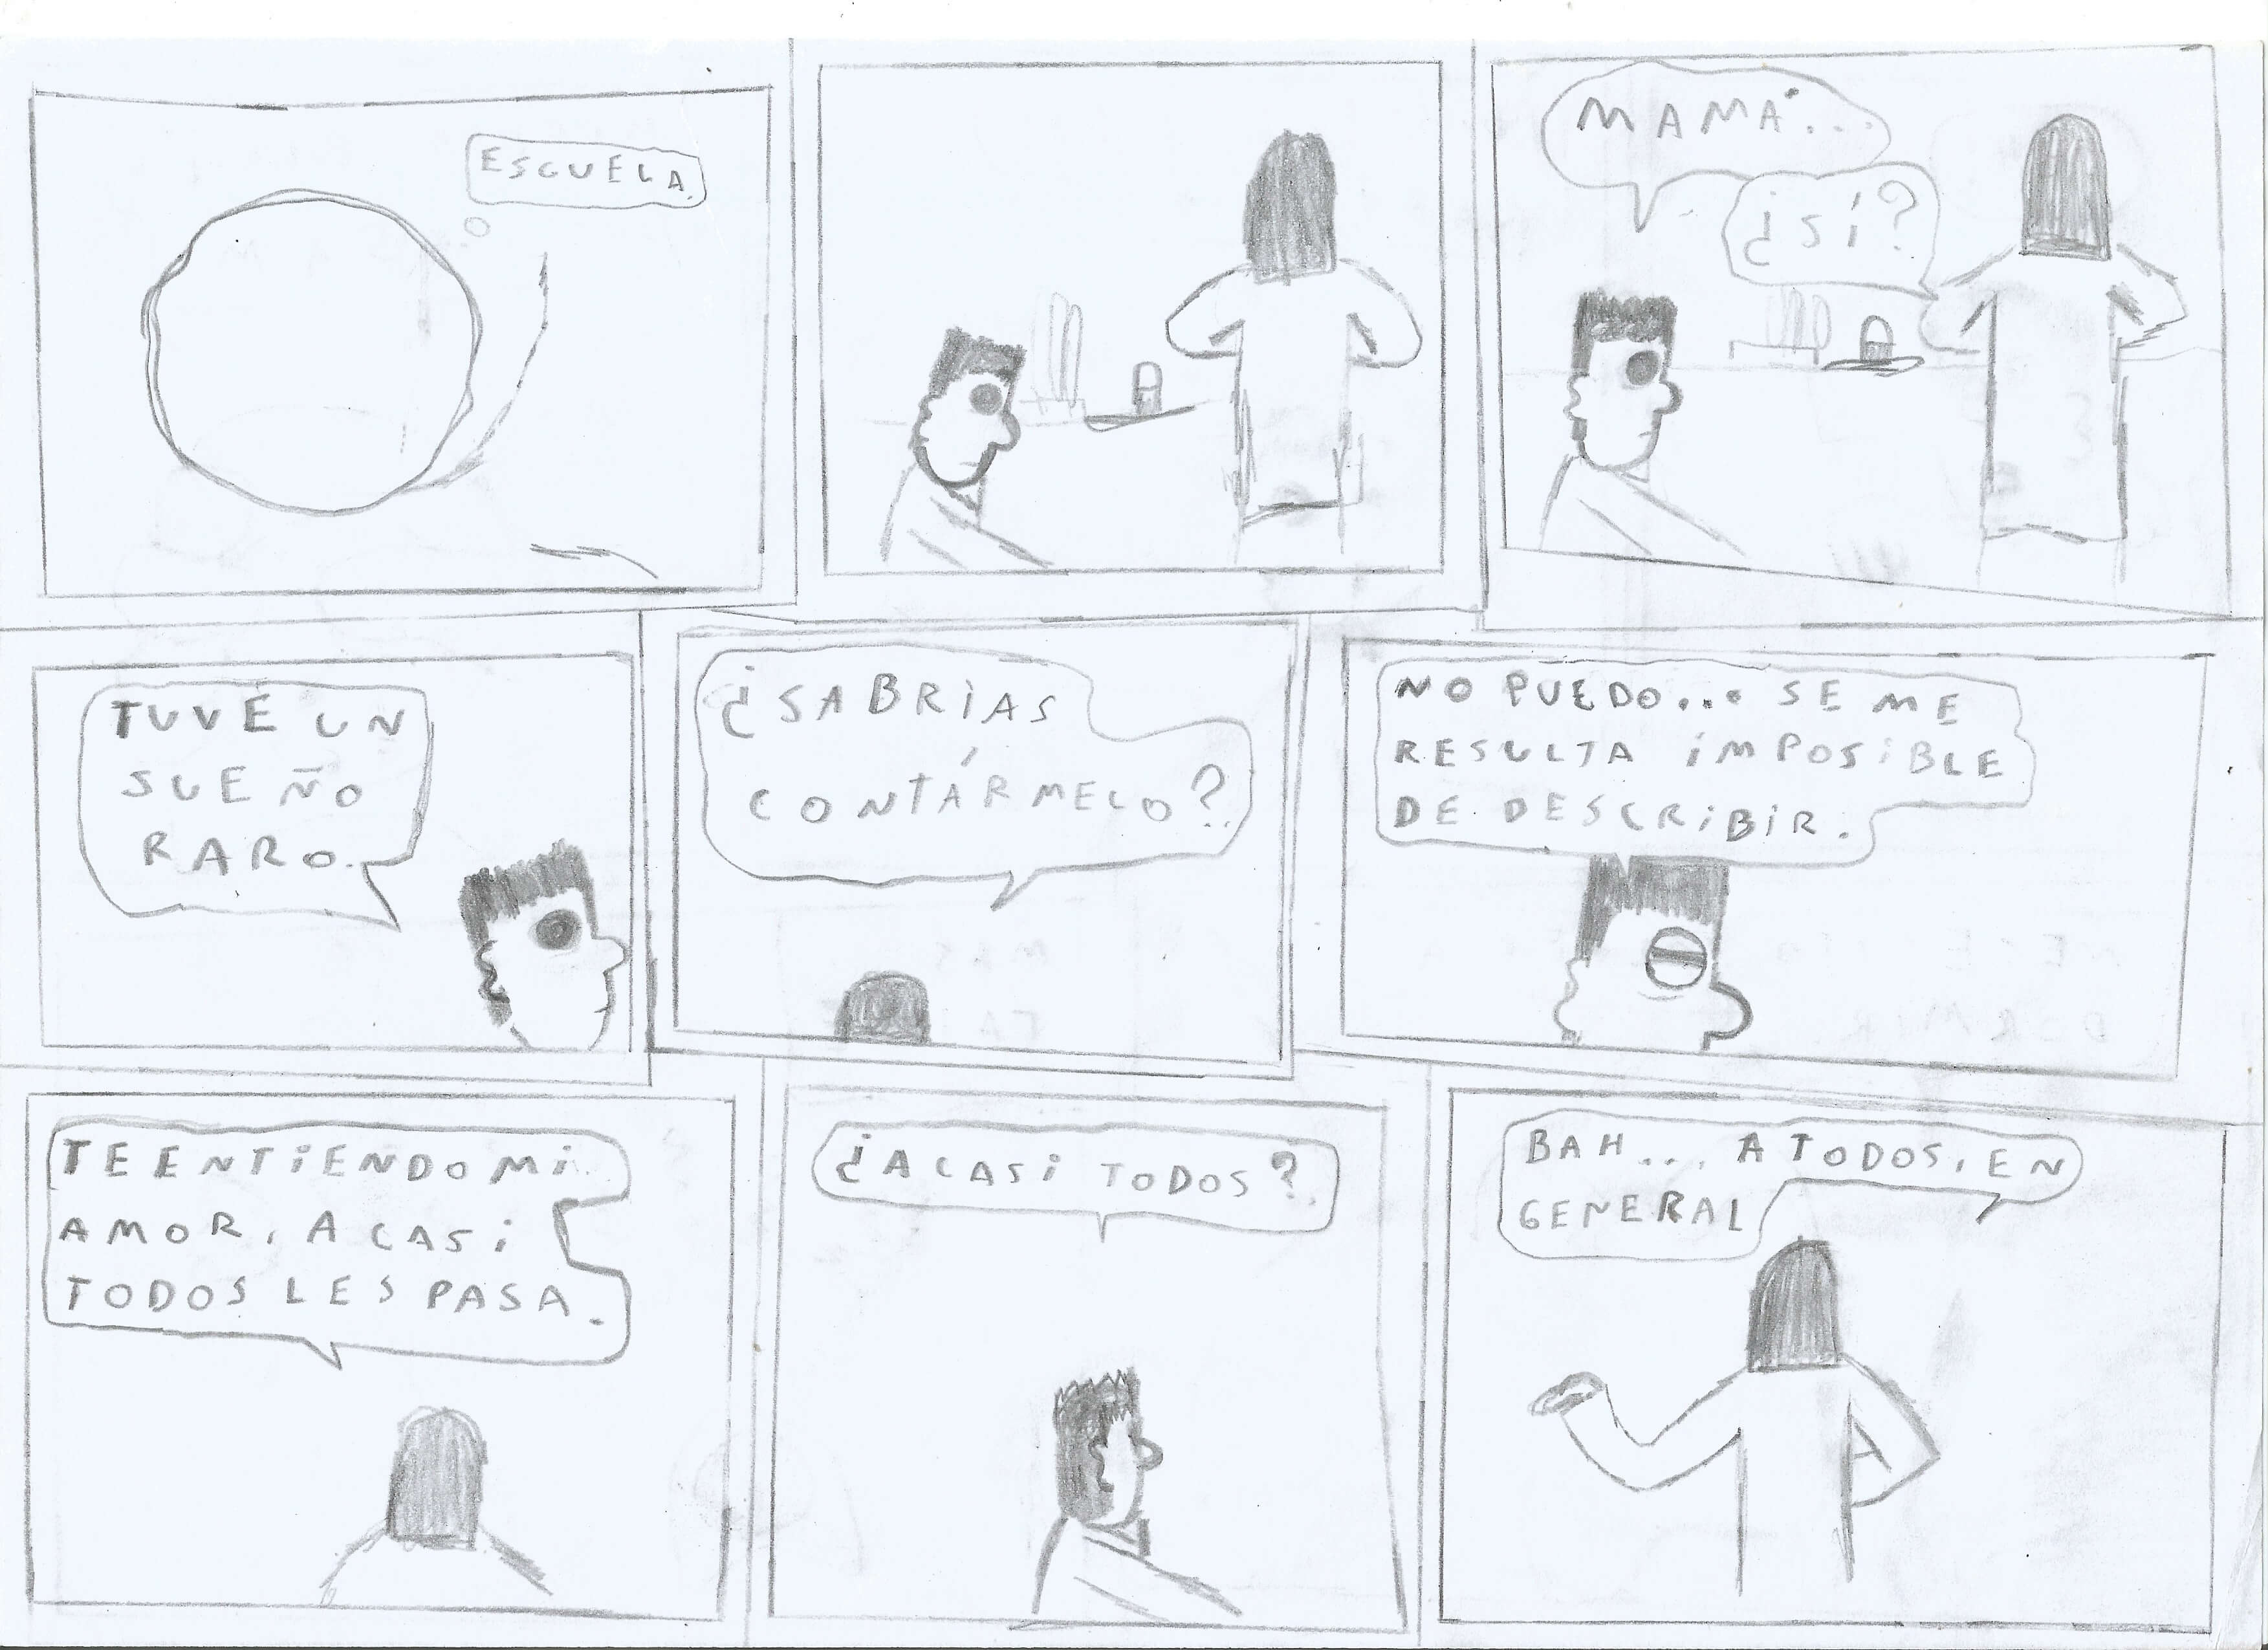 ESCUELA.
MAMÁ...
¿SÍ?
TUVE UN
SUEÑO
RARO.
¿SABRÍAS
CONTÁRMELO?
NO PUEDO... SE ME
RESULTA IMPOSIBLE
DE DESCRIBIR.
TE ENTIENDO MI
AMOR, A CASI
TODOS LES PASA.
¿A CASI TODOS?
BAH... A TODOS, EN
GENERAL